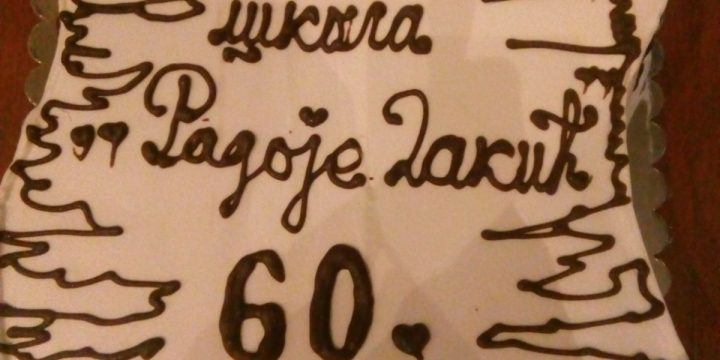 школа
„Радоје Дакић“
60